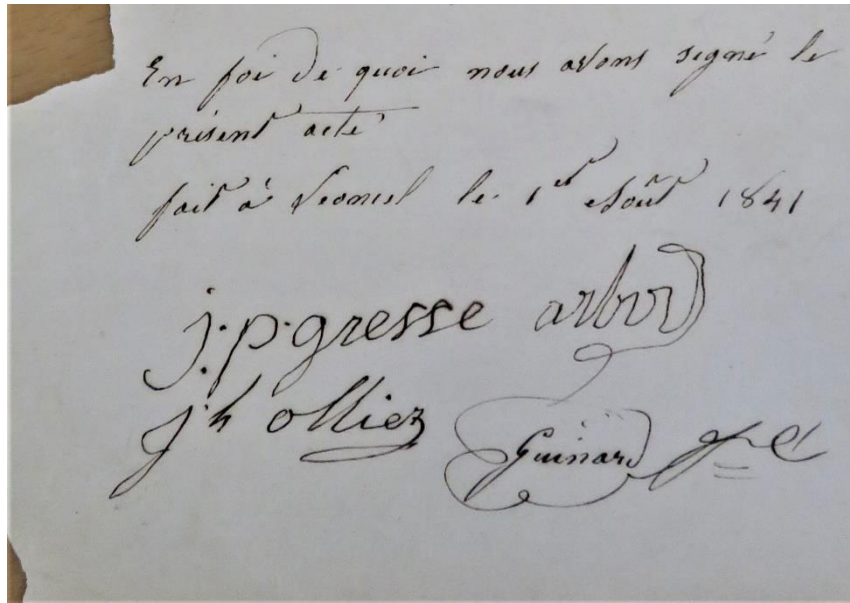 En foi de quoi nous avons signé le
présent acte
fait à Léoncel le 1er Août 1841
j. p. gresse arbod
j h olliez
Guinard